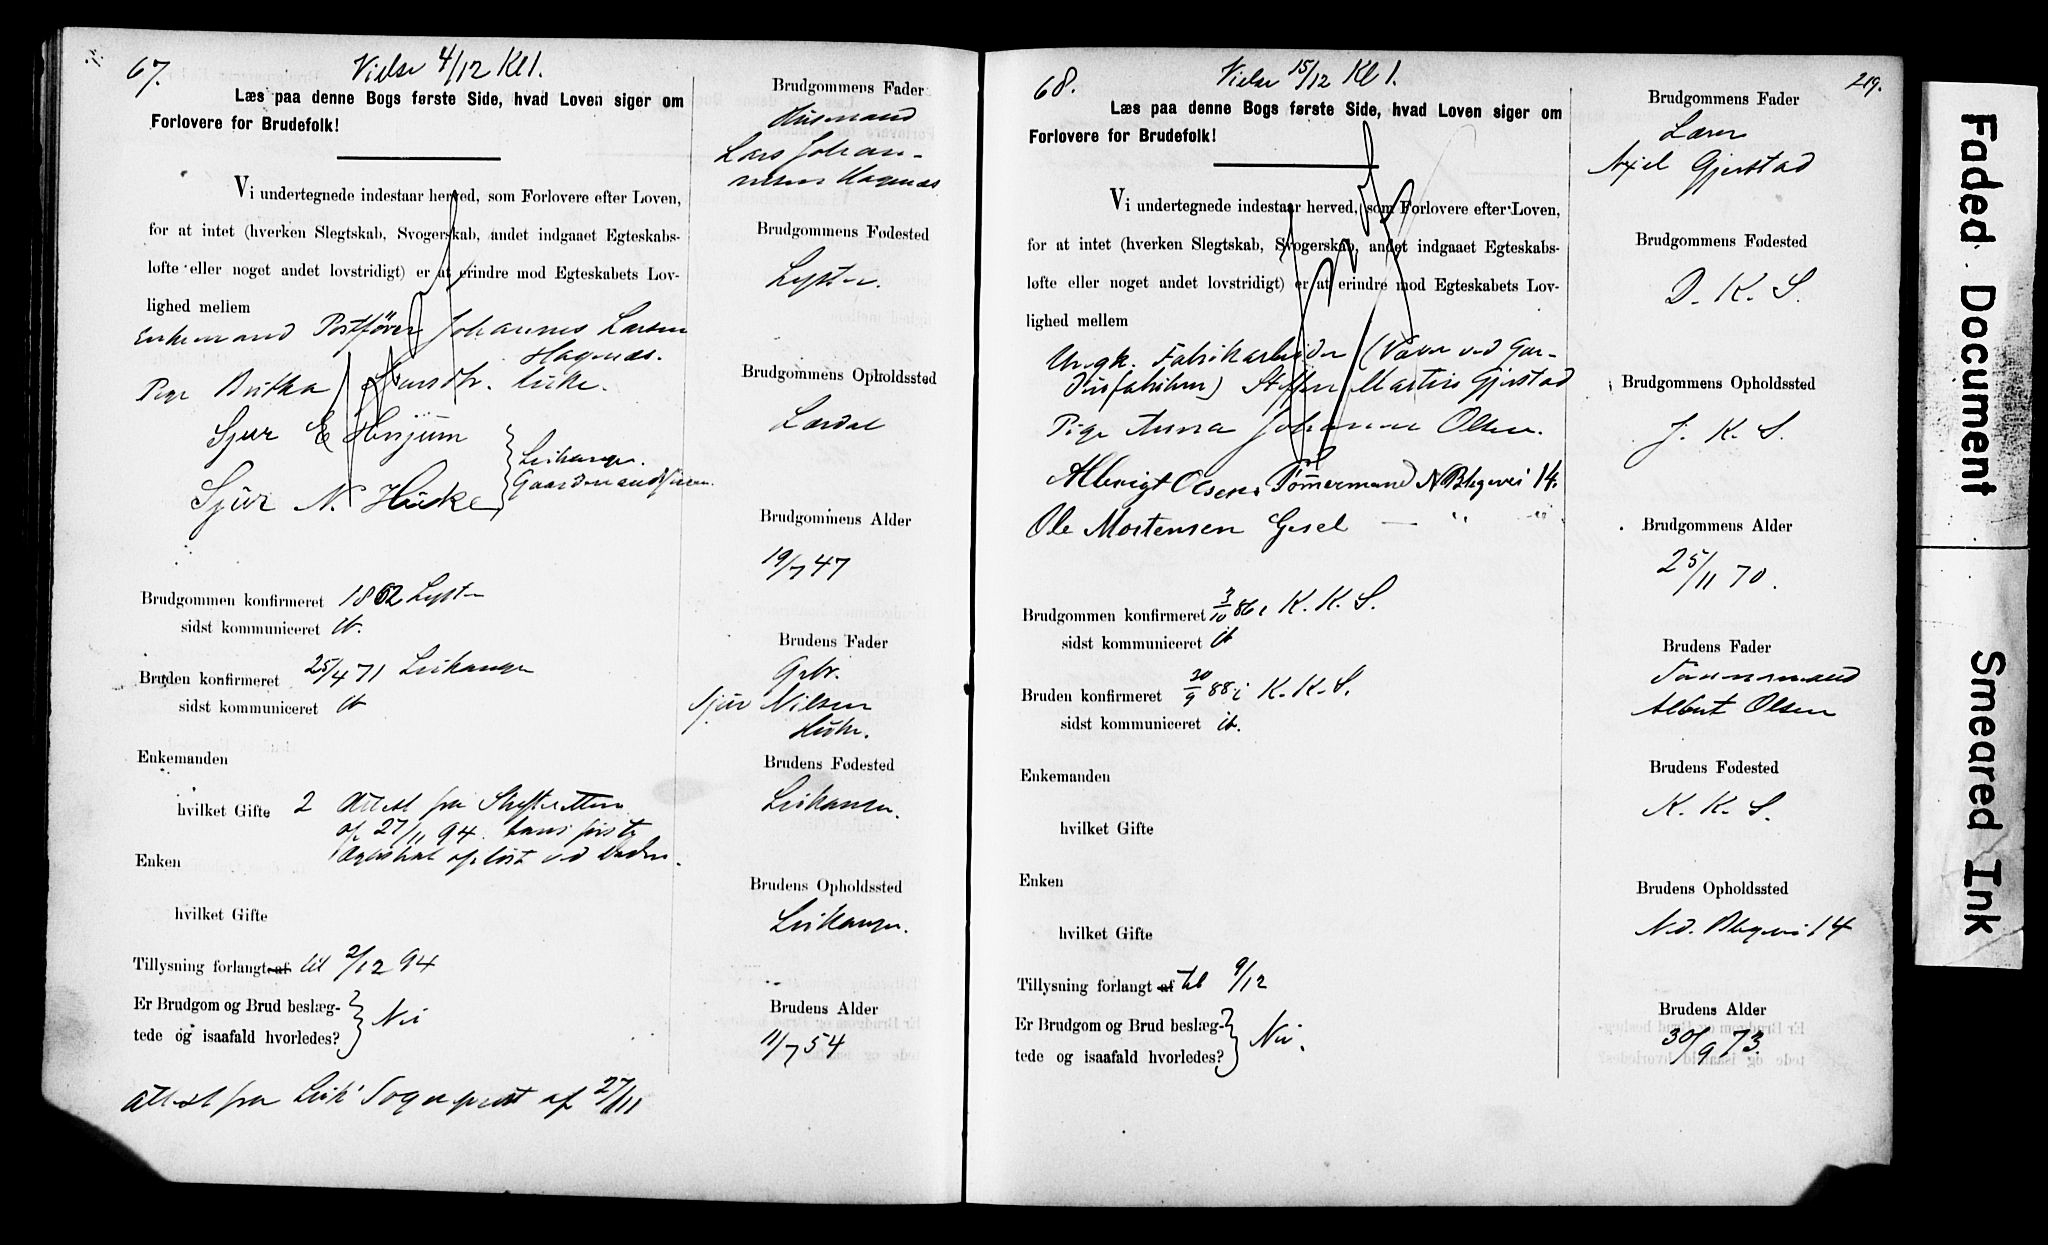 67.
Vielse 4/12 Kl 1.
Læs paa denne Bogs første Side, hvad Loven siger om
Forlovere for Brudefolk!
Vi undertegnede indestaar herved, som Forlovere efter Loven,
for at intet (hverken Slegtskab, Svogerskab, andet indgaaet Egteskabs-
løfte eller noget andet lovstridigt) er at erindre mod Egteskabets Lov-
lighed mellem
Enkemand Postfører Johannes Larsen
Hagenæs.
Pige Britha Sjursdtr. Huke.
Sjur E Henjum
Sjur N. Huke
Leikanger.
Brudgommen konfirmeret 1862 Lyster
sidst kommuniceret it.
Bruden konfirmeret 25/4 71 Leikanger
sidst kommuniceret it
Enkemanden
hvilket Gifte 2 Attest fra Skifteretten
af 27/11 94. hans første
Ægteskab opløst ved Døden.
Enken
hvilket Gifte
Tillysning forlangt af til 2/12 94
Er Brudgom og Brud beslæg-
tede og isaafald hvorledes?
Nei
Attest fra Leik. Sogneprest af 27/11
Brudgommens Fader
Husmand
Lars Johan-
nesen Hagenæs
Brudgommens Fødested
Lyster.
Brudgommens Opholdssted
Lærdal
Brudgommens Alder
19/7 47
Brudens Fader
Gbr.
Sjur Nilsen
Huke.
Brudens Fødested
Leikanger.
Brudens Opholdssted
Leikanger.
Brudens Alder
11/7 54
68.
Vielse 15/12 Kl 1.
219.
Læs paa denne Bogs første Side, hvad Loven siger om
Forlovere for Brudefolk!
Vi undertegnede indestaar herved, som Forlovere efter Loven,
for at intet (hverken Slegtskab, Svogerskab, andet indgaaet Egteskabs-
løfte eller noget andet lovstridigt) er at erindre mod Egteskabets Lov-
lighed mellem
Ungk. Fabrikarbeider (Væver ved Gar-
dinfabriken) Steffen Martin Gjerstad
Pige Anna Johanne Olsen.
Albrigt Olsen Tømmermand N Blegevei 14.
Ole Mortensen Gesel — " "
Brudgommen konfirmeret 3/10 86 i K. K. S.
sidst kommuniceret it
Bruden konfirmeret 30/9 88 i K. K. S.
sidst kommuniceret it.
Enkemanden
hvilket Gifte
Enken
hvilket Gifte
Tillysning forlangt af til 9/12
Er Brudgom og Brud beslæg-
tede og isaafald hvorledes?
Nei.
Brudgommens Fader
Lærer
Axel Gjerstad
Brudgommens Fødested
D. K. S.
Brudgommens Opholdssted
J. K. S.
Brudgommens Alder
25/11 70.
Brudens Fader
Tømmermand
Albert Olsen
Brudens Fødested
K. K. S.
Brudens Opholdssted
Ned. Blegevei 14
Brudens Alder
30/9 73.
Faded Document
Smeared Ink